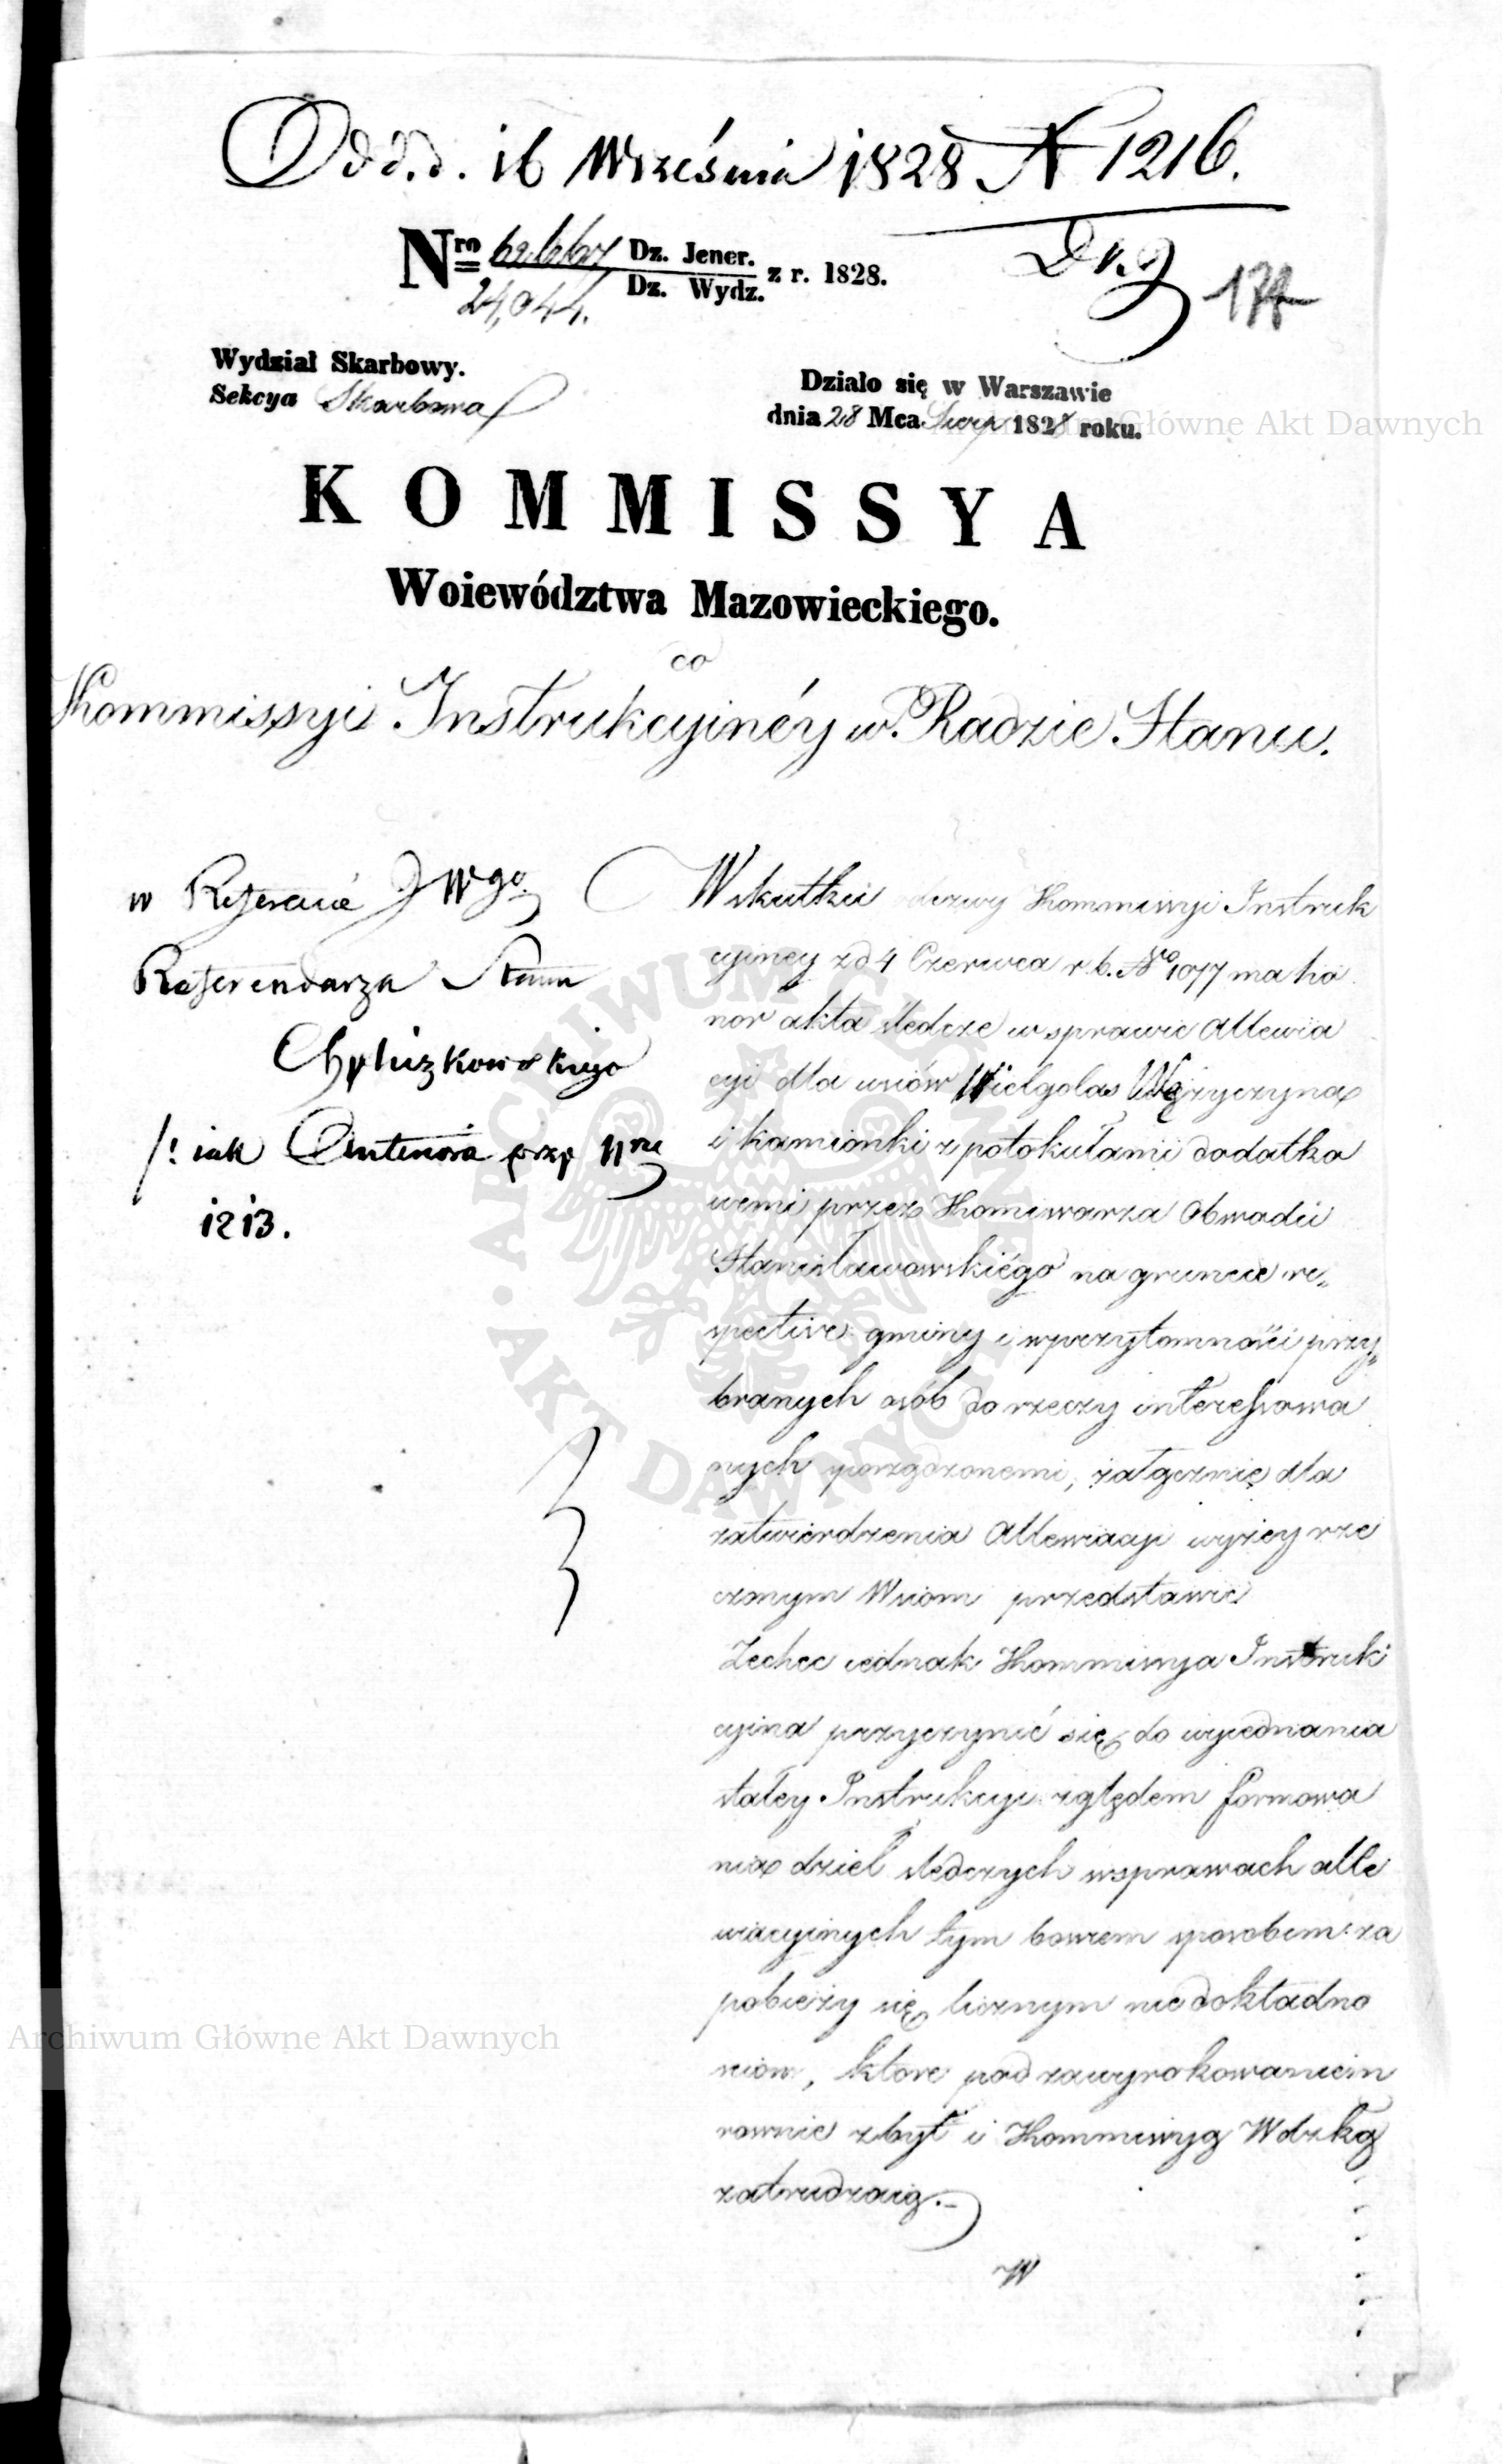 Odd. d. 16 Września 1828 N 1216.
Nro 62667 Dz. Jener.
24,044. Dz. Wydz. z r. 1828.
Wydział Skarbowy.
Sekcya Skarbowa
Działo się w Warszawie
dnia 28 Mca Sierp 1828 roku.
KOMMISSYA
Woiewództwa Mazowieckiego.
Do
Kommissyi Instrukcyinéy w Radzie Stanu.
w Referencie JWgo
Referendarza Stanu
/: iak
1213.
Wskutku odezwy Kommissyi Instruk
cyiney z d 4 Czerwca r. b. No 1077 ma ho
nor akta śledcze w sprawie Allewia
cyi dla wsiów Wielgolas Wężyczyna
i Kamionki z protokułami dodatko
wemi przez Kommissarza Obwodu
Stanisławowskiégo na gruncie re„
spective gminy i w przytomności przy„
branych osób do rzeczy interessowa
nych porządzonemi, załącznie dla
zatwierdzenia Allewiacyi wyżey rze
czonym Wsiom przedstawić
Zechce iednak Kommissya Instruk
cyina przyczynić się do wyiednania
stałey Instrukcyi względem formowa
nia dzieł śledczych w sprawach alle
wiacyinych tym bowiem sposobem za
pobieży się licznym niedokładno
sciom, ktore pod zawyrokowaniem
rownie zbyt i Kommissyą Wdzką
zatrudzaią.–
W
Archiwum Główne Akt Dawnych
ARCHIWUM GŁÓWNE · AKT DAWNYCH ·
Archiwum Główne Akt Dawnych